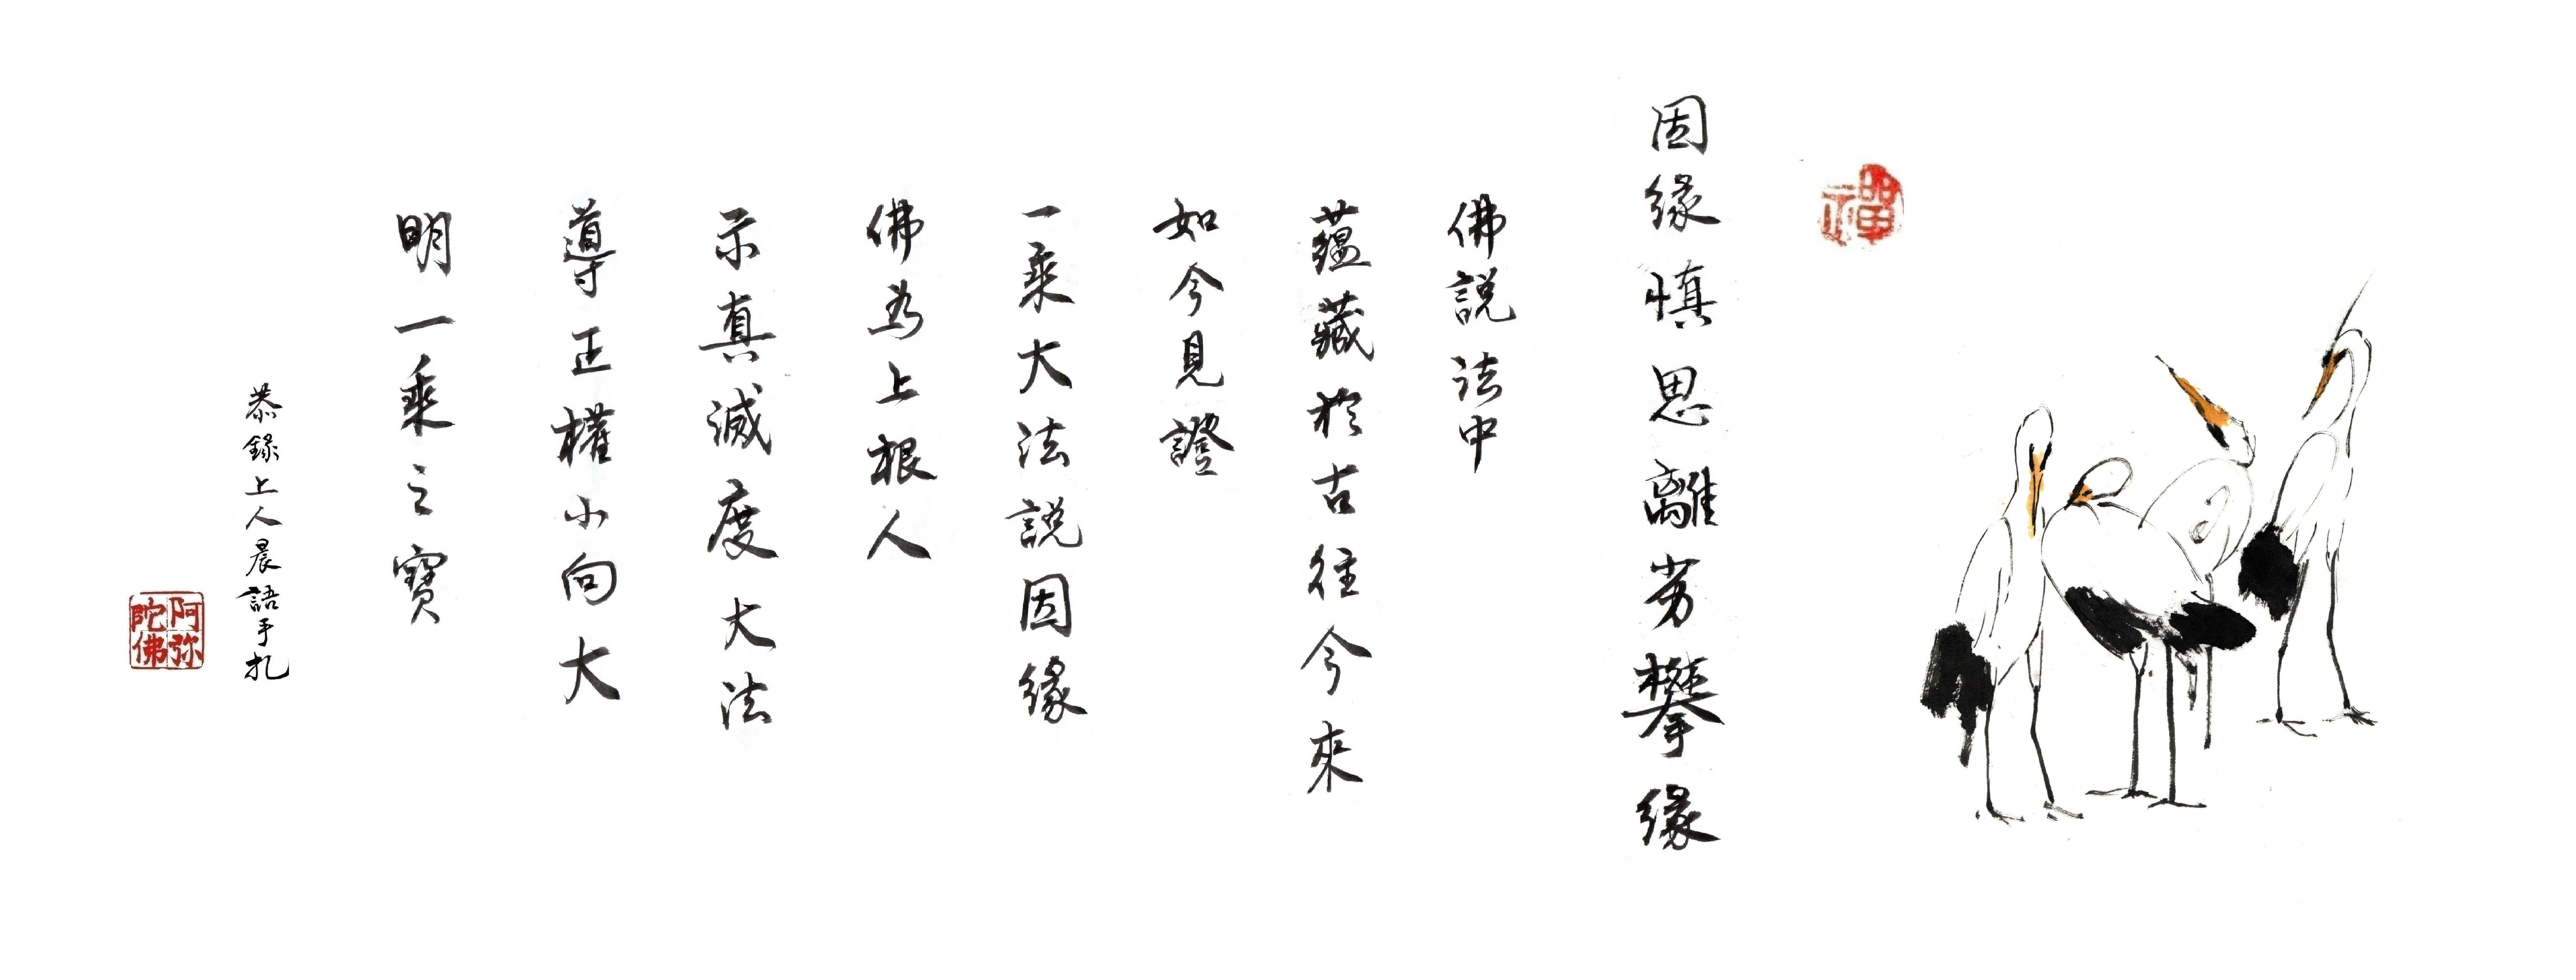 禪
因緣慎思離劣攀緣
佛說法中
蘊藏於古往今來
如今見證
一乘大法說因緣
佛為上根人
示真滅度大法
導正權小向大
明一乘之寶
恭錄上人晨語手札
阿弥陀佛